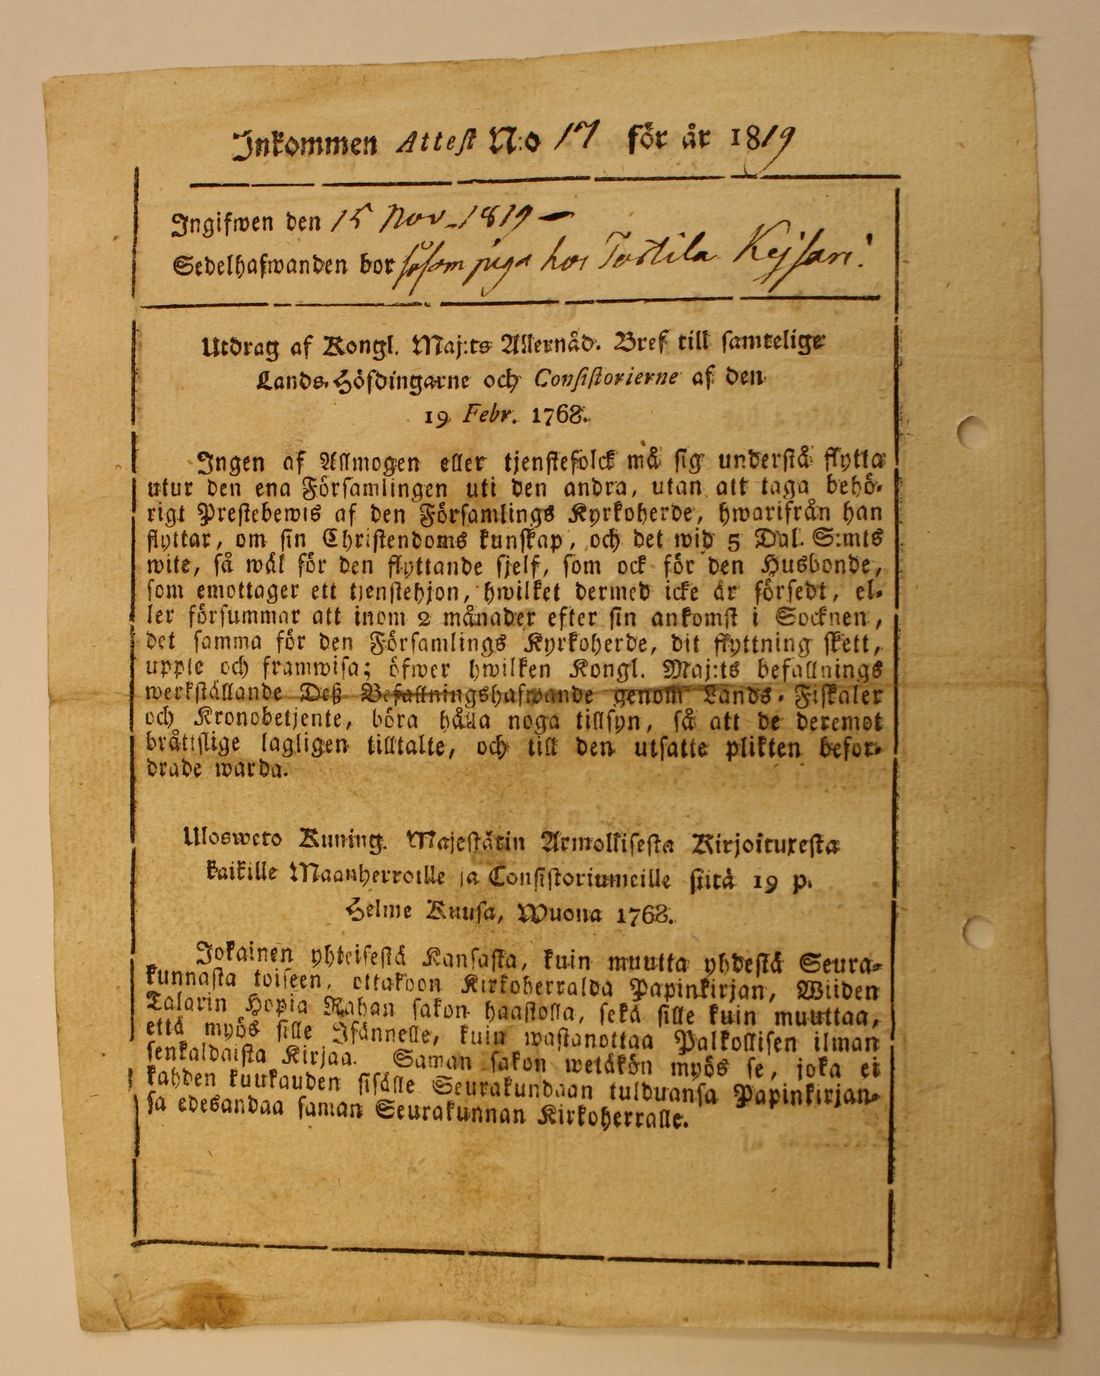 Inkommen Attest N:o 17 för år 1819
Ingifwen den 15 Nov. 1819 —
Sedelhafwanden bor såsom piga hos Tortila Kejsari!
Utdrag af Kongl. Maj:ts Allernåd. Bref till samtelige
Lands-Höfdingarne och Consistorierne af den
19 Febr. 1768.
Ingen af Allmogen eller tjenstefolck må sig understå flytta
utur den ena Församlingen uti den andra, utan att taga behö-
rigt Prestebewis af den Församlings Kyrkoherde, hwarifrån han
flyttar, om sin Christendoms kunskap, och det wid 5 Dal. S:mts
wite, så wäl för den flyttande sjelf, som ock för den Husbonde,
som emottager ett tjenstehjon, hwilket dermed icke är försedt, el-
ler försummar att inom 2 månader efter sin ankomst i Socknen,
det samma för den Församlings Kyrkoherde, dit flyttning skett,
uppte och framwisa; öfwer hwilken Kongl. Maj:ts befallnings
werkställande Deß Befallningshafwande genom Lands-Fiskaler
och Kronobetjente, böra hålla noga tillsyn, så att de deremot
bråttslige lagligen tilltalte, och till den utsatte plikten befor-
drade warda.
Ulosweto Kuning. Majestätin Armollisesta Kirjoituxesta
kaikille Maanherroille ja Consistoriumeille siitä 19 p.
Helme Kuusa, Wuona 1768.
Jokainen yhteisestä Kansasta, kuin muutta yhdestä Seura-
kunnasta toiseen, ottakoon Kirkoherralda Papinkirjan, Wiiden
Talarin Hopia Rahan sakon haastolla, sekä sille kuin muuttaa,
että myös sille Isännelle, kuin wastanottaa Palkollisen ilman
senkaldaista Kirjaa. Saman sakon wetäkön myös se, joka ei
kahden kuukauden sisälle Seurakundaan tulduansa Papinkirjan-
sa edesandaa saman Seurakunnan Kirkoherralle.